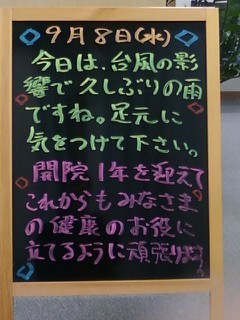 9月8日(水)
今日は、台風の影
響で久しぶりの雨
ですね。足元に
気をつけて下さい。
開院1年を迎えて
これからもみなさま
の健康のお役に
立てるように頑張ります